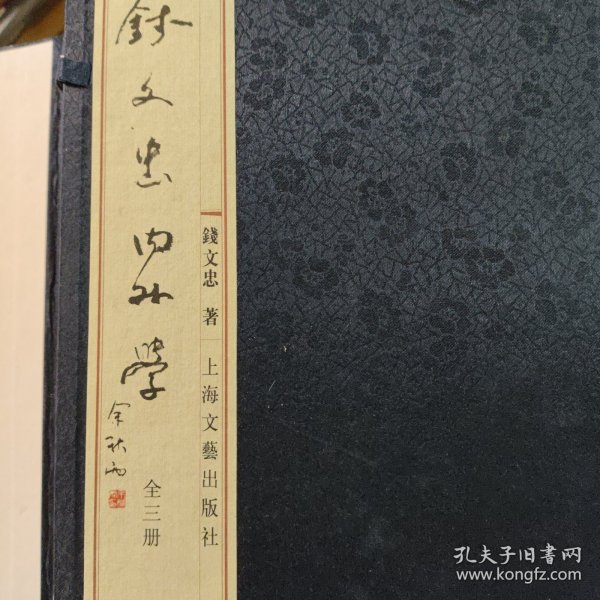 錢文忠內外學
余秋雨
全三册
錢文忠 著
上海文藝出版社
孔夫子旧書网
www.kongfz.com